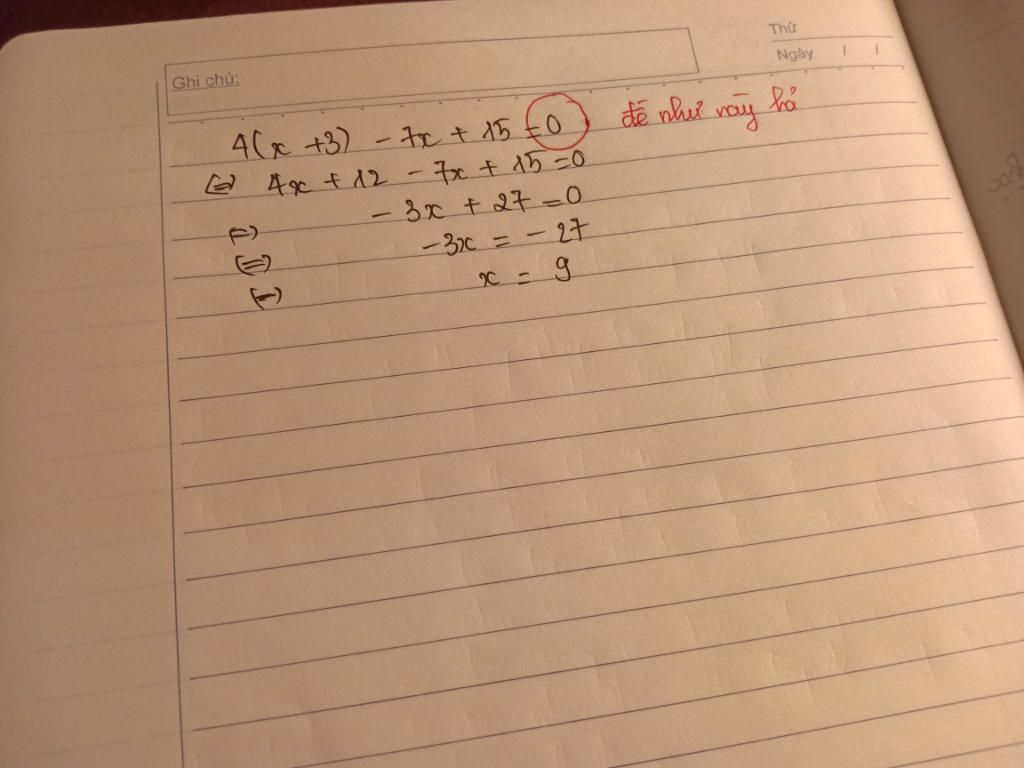 Thứ
Ngày / /
Ghi chú:
4(x +3) - 7x + 15 = 0 đề như vậy hả
(=) 4x + 12 - 7x + 15 = 0
(-) - 3x + 27 = 0
(=) -3x = - 27
(-) x = 9